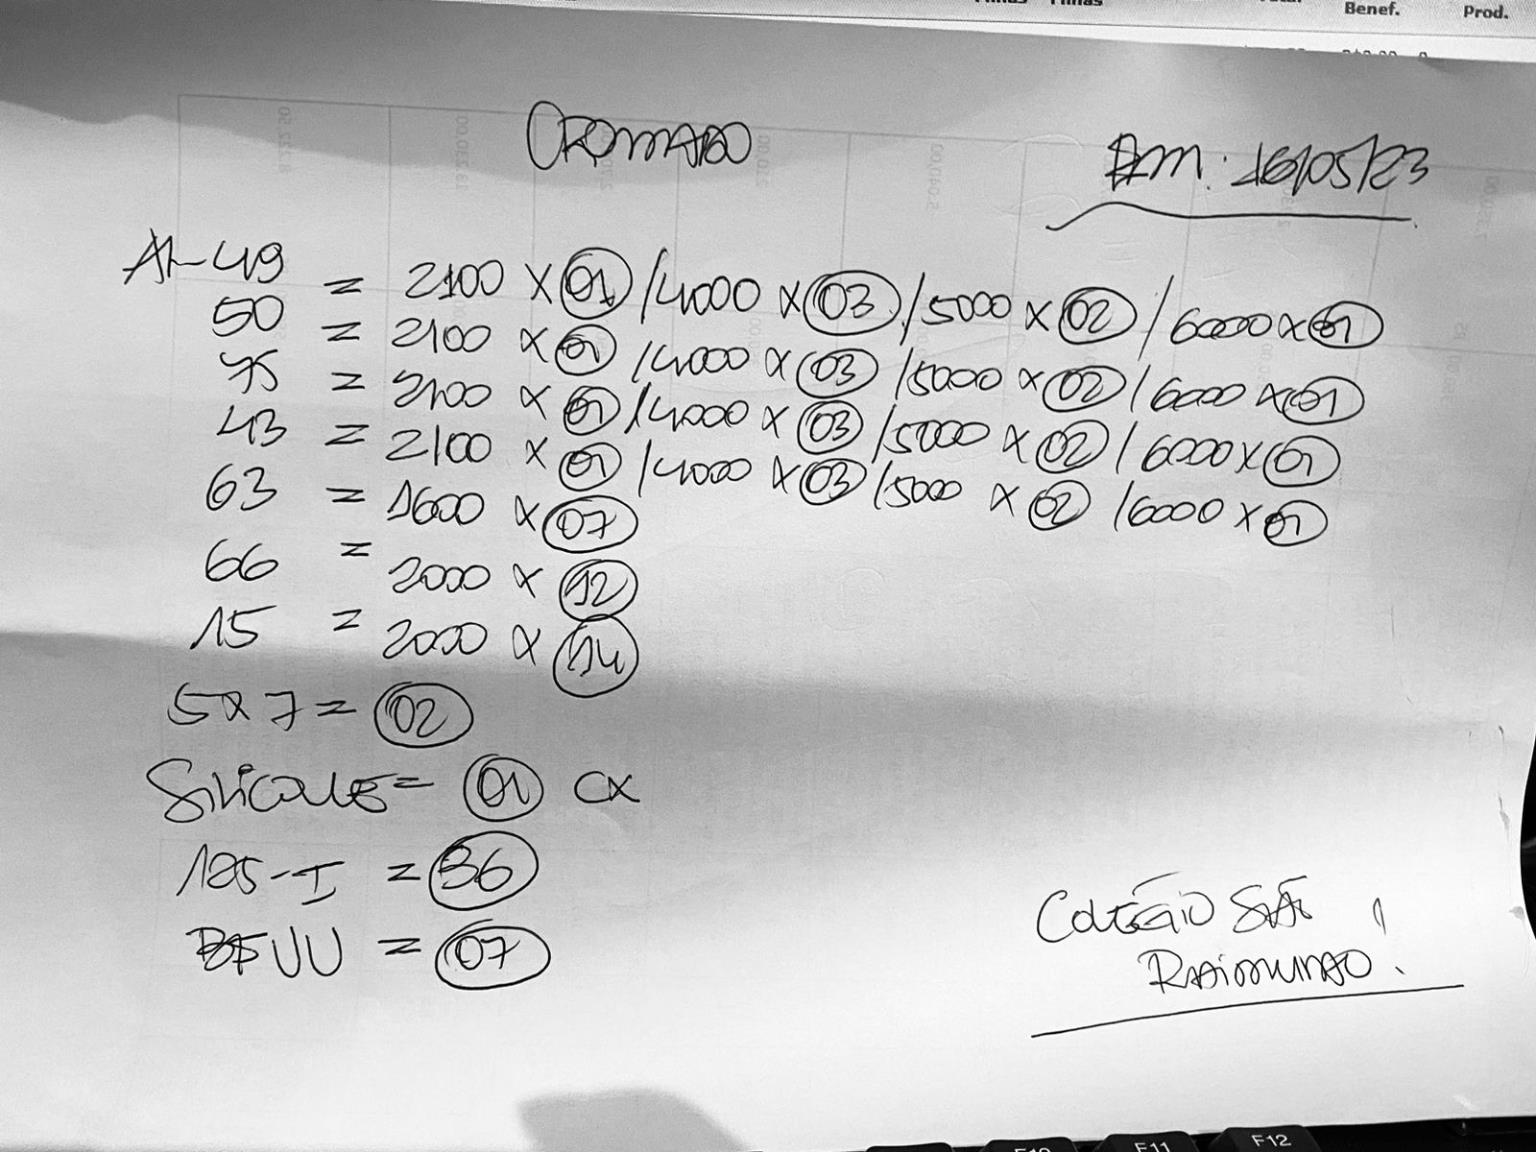 Benef. Prod.
CROMADO
EM: 16/05/23
AL-49 = 2100 X 01 / 4000 X 03 / 5000 X 02 / 6000 X 01
50 = 2100 X 01 / 4000 X 03 / 5000 X 02 / 6000 X 01
75 = 2100 X 01 / 4000 X 03 / 5000 X 02 / 6000 X 01
43 = 2100 X 01 / 4000 X 03 / 5000 X 02 / 6000 X 01
63 = 1600 X 07
66 = 2000 X 12
15 = 2000 X 14
5X7 = 02
SILICONE = 01 CX
185-I = 36
= 07
COLÉGIO SÃO
RAIMUNDO.
F10 F11 F12